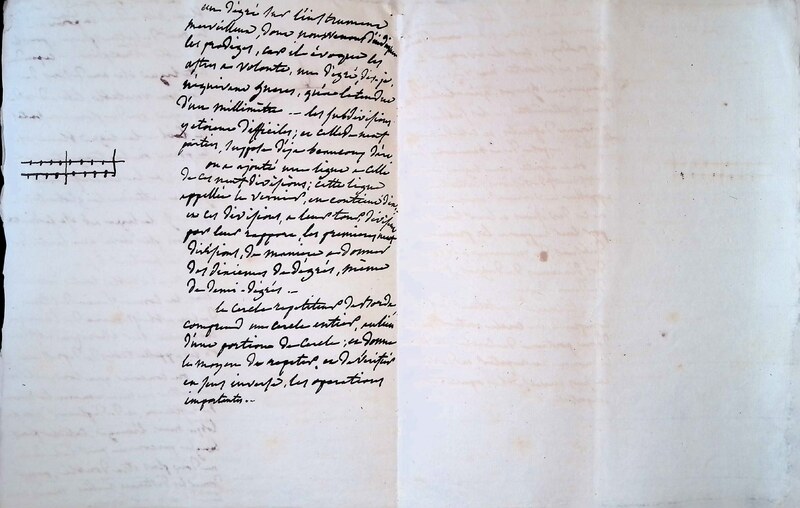 un dégré sur l'instrument
merveilleux, dont nous venons d'indiquer
les prodiges, car il évoque les
astres a volonté, un dégré, dis-je,
n'équivaut gueres, qu'a letendue
d'un millimètre -- les subdivisions
y etoient difficiles; et celle de neuf
parties, suppose déja beaucoup d'art
on a ajouté une ligne a celle
de ces neuf divisions; cette ligne
appellée le vernier, en contient dix
et ces divisions, a leur tour divisent
par leur rapport, les premieres neuf
divisions, de maniere a donner
des dixiemes de dégrés, même
de demi-dégrés --
le Cercle repetiteur de Borda
comprend un cercle entier, au lieu
d'une portion de Cercle; et donne
le moyen de repeter, et de verifier
en sens inverse, les operations
importantes --